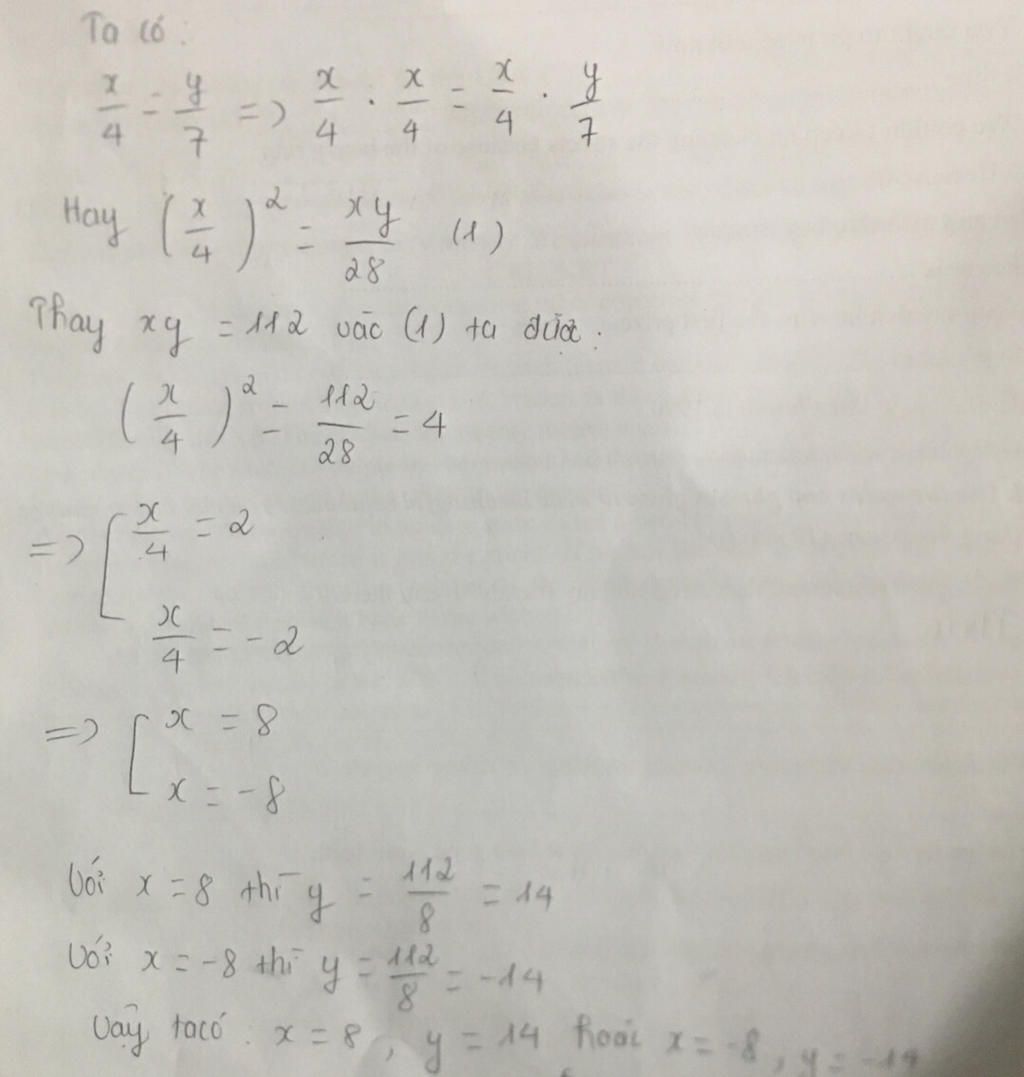 Ta có:
x/4 = y/7 => x/4 . x/4 = x/4 . y/7
Hay (x/4)² = xy/28 (1)
Thay xy = 112 vào (1) ta được:
(x/4)² = 112/28 = 4
=> [ x/4 = 2
x/4 = -2
=> [ x = 8
x = -8
Với x = 8 thì y = 112/8 = 14
Với x = -8 thì y = 112/8 = -14
Vậy ta có: x = 8, y = 14 hoặc x = -8, y = -14